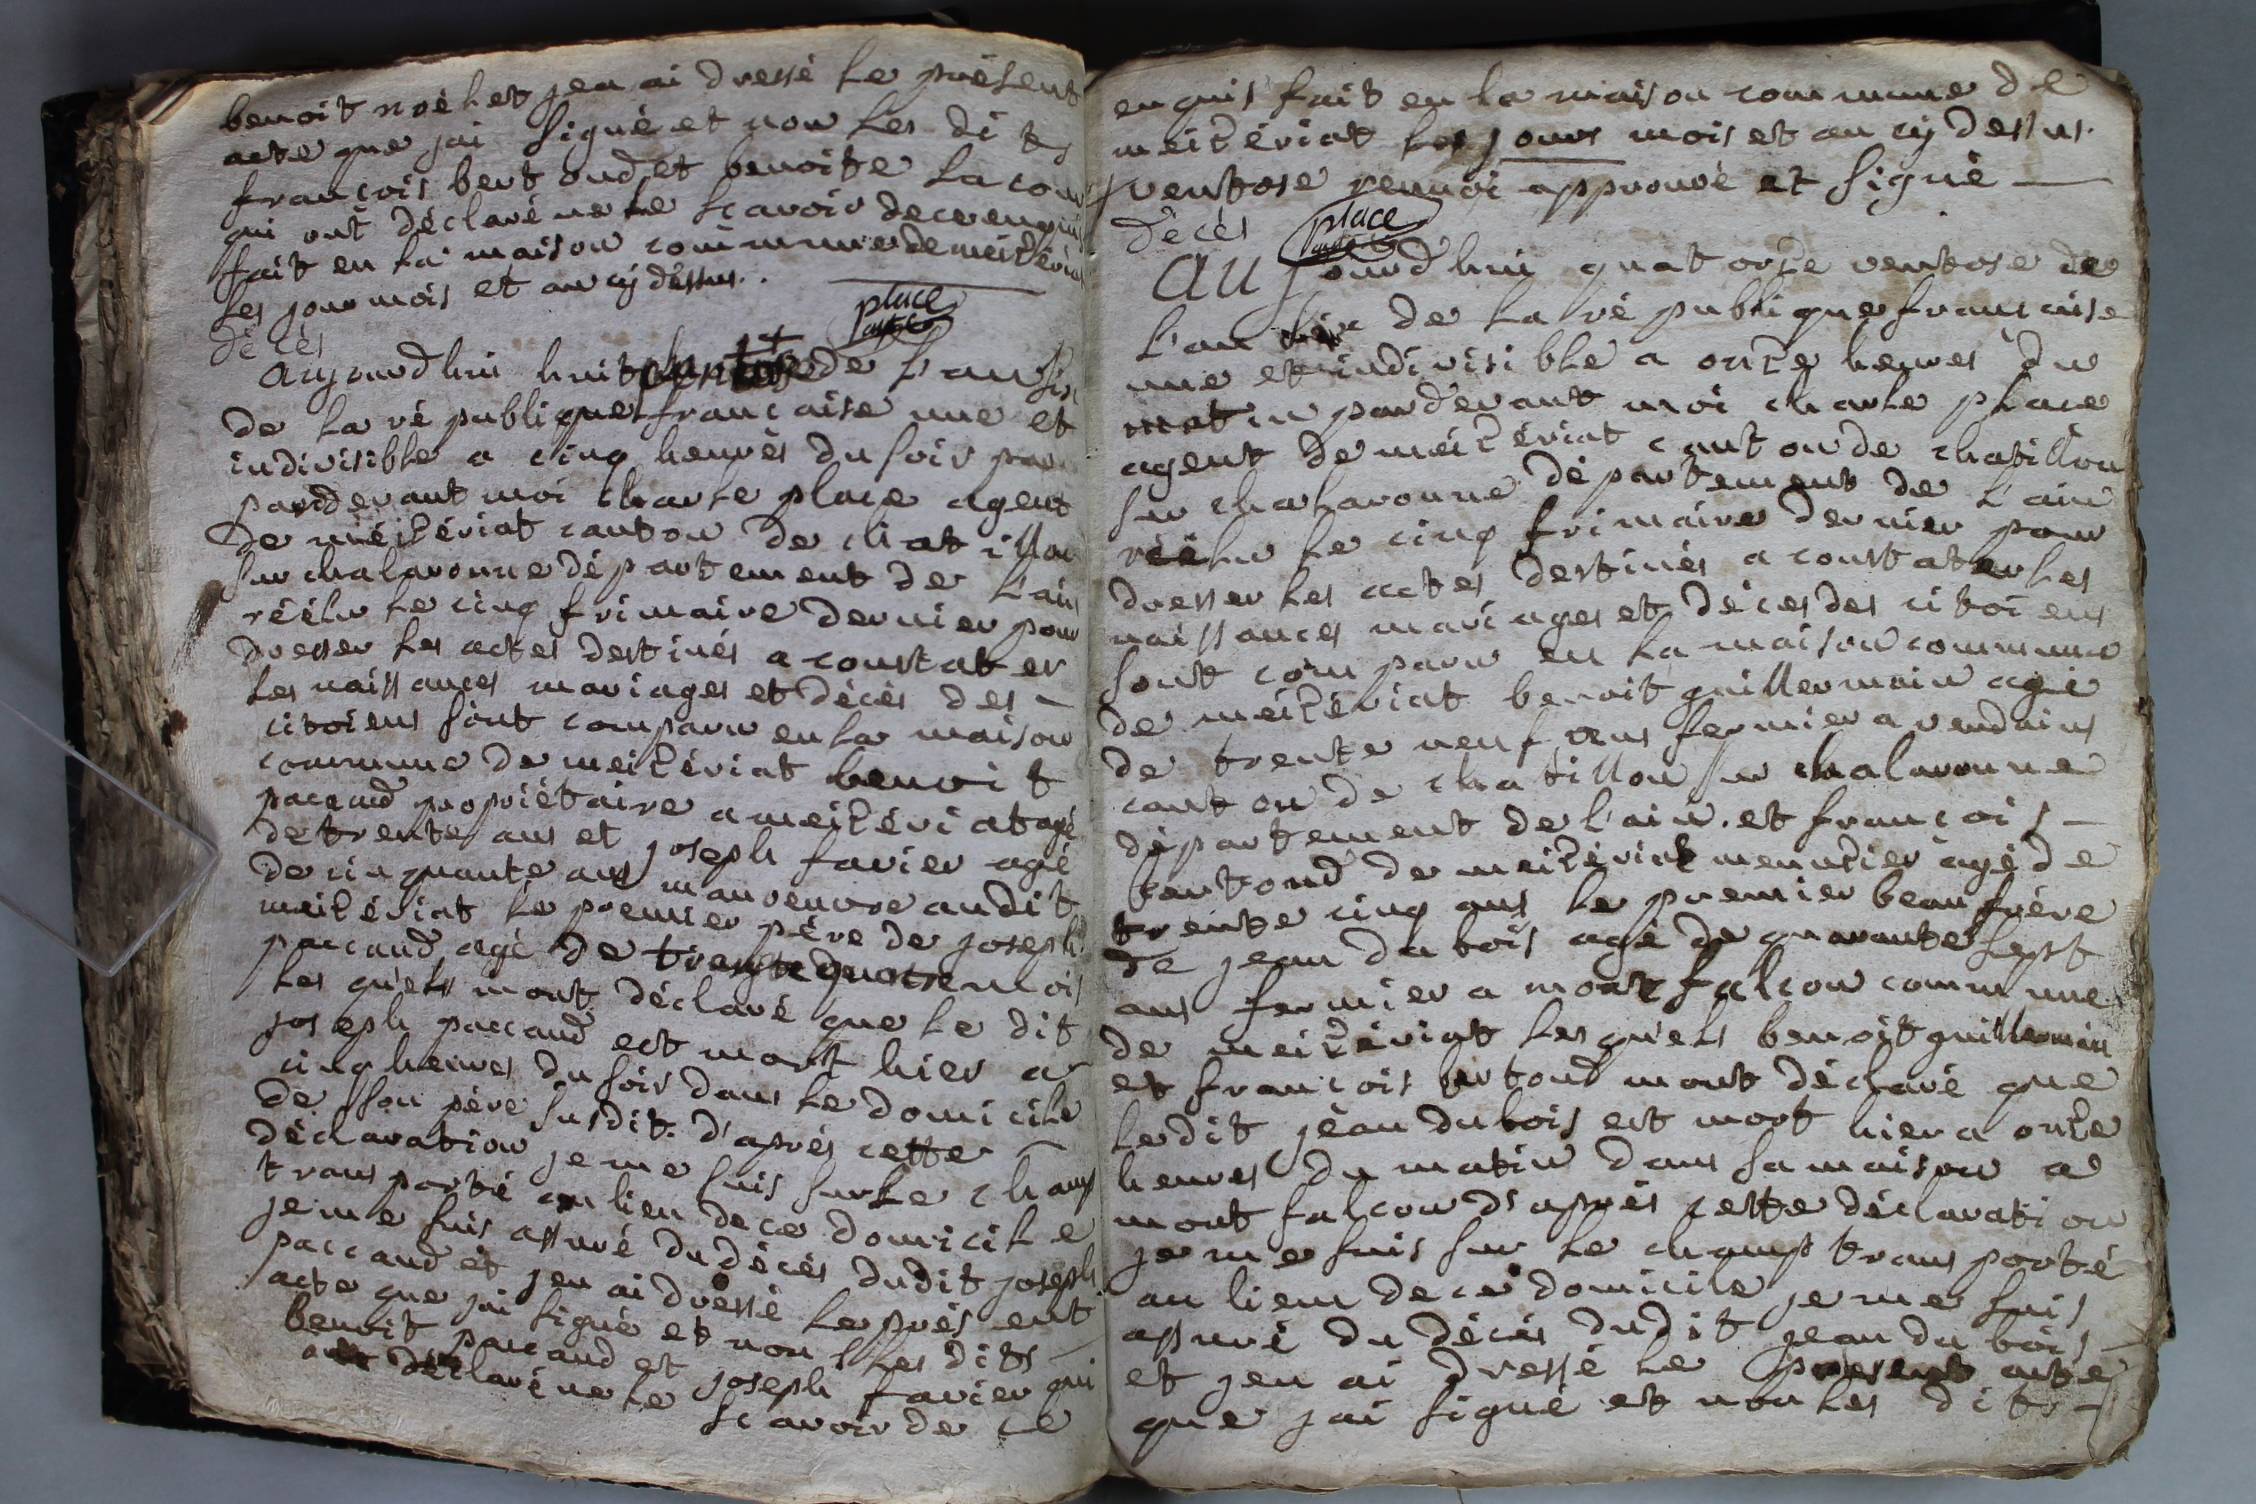 benoit noéhet jen ai dressé le présent
acte que jai signé et non les dits
françois bertoud et benoite lacour
qui ont déclaré ne le scavoir de ce enquis
fait en la maison commune de meizériat
les jour mois et an cy dessus.
place
agent
décès
aujourdhui huit de l'an six
de la république française une et
indivisible a cinq heures du soir par
pardevant moi charle place agent
de méizériat canton de chatillon
sur chalaronne département de l'ain
réélu le cinq frimaire dernier pour
dresser les actes destinés a constater
les naissances mariages et décès des
citoiens sont comparu en la maison
commune de meizériat benoit
paccaud propriétaire a meizériat agé
de trente ans et joseph favier agé
de cinquante ans manoeuvre audit
meizériat le premier pére de joseph
paccaud agé de trente quatre mois
les quels mont déclaré que le dit
joseph paccaud est mort hier a
cinq heures du soir dans le domicile
de sson pére susdit. d'après cette
déclaration je me suis sur le champ
trans porté au lieu de ce domicile
je me suis assuré du décès dudit joseph
paccaud et jen ai dressé le présent
acte que jai signé et non les dits
benoit paccaud et joseph favier qui
ont déclaré ne le scavoir de ce
enquis fait en la maison commune de
meizériat les jours mois et an cy dessus.
ventose renvoi approuvé et signé
décès
place
agent
aujourdhui quatorze ventose de
l'an six de la ré publique francaise
une et indivisible a onze heures du
matin pardevant moi charle place
agent de meizériat canton de chatillon
sur chalaronne département de l'ain
réélu le cinq frimaire dernier pour
dresser les actes destinés a constater les
naissances mariages et décès des citoiens
sont comparu en la maison commune
de meizériat benoit guillermain agé
de trente neuf ans fermier a vendains
canton de chatillon sur chalaronne
département de l'ain. et françois
bertoud de meizériat meunier agé de
trente cinq ans le premier beau frére
de jean du bois agé de quarante sept
ans fermier a montfalcon commune
de meizériat les quels benoit guillermain
et francois bertoud mont déclaré que
ledit jean dubois est mort hier a onze
heures du matin dans sa maison a
mont falcon d'après cette déclaration
je me suis sur le champ trans porté
au lieu de ce domicile je me suis
assuré du décès dudit jean du bois
et jen ai dressé le present acte
que jai signé et non les dits